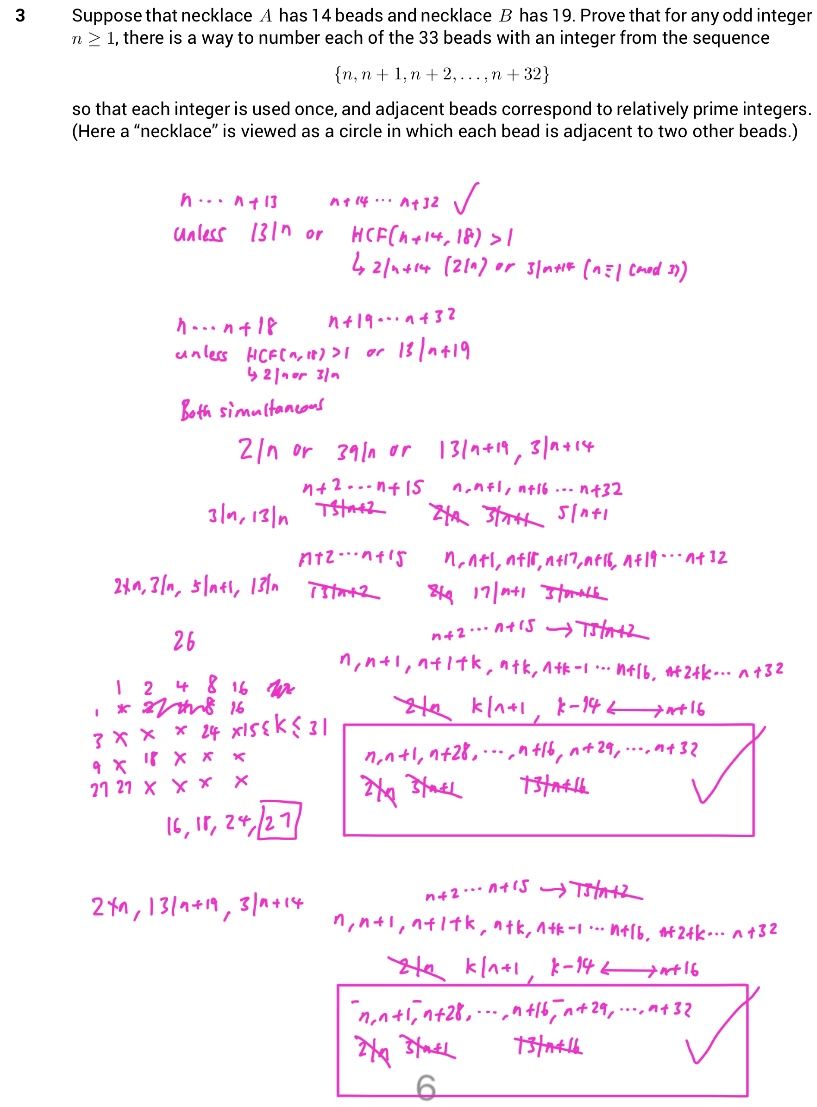 3 Suppose that necklace A has 14 beads and necklace B has 19. Prove that for any odd integer
n ≥ 1, there is a way to number each of the 33 beads with an integer from the sequence
{n, n + 1, n + 2, . . . , n + 32}
so that each integer is used once, and adjacent beads correspond to relatively prime integers.
(Here a “necklace” is viewed as a circle in which each bead is adjacent to two other beads.)
n ··· n+13 n+14 ··· n+32 ✓
unless 13|n or HCF(n+14, 18) >1
↳ 2|n+14 (2|n) or 3|n+14 (n≡1 (mod 3))
n ··· n+18 n+19 ··· n+32
unless HCF(n,18) >1 or 13|n+19
↳ 2|n or 3|n
Both simultaneous
2|n or 39|n or 13|n+19, 3|n+14
n+2 ··· n+15 n, n+1, n+16 ··· n+32
3|n, 13|n 13|n+2 2|n 3|n+1 5|n+1
n+2 ··· n+15 n, n+1, n+18, n+17, n+16, n+19 ··· n+32
2∤n, 3|n, 5|n+1, 13|n 13|n+2 2|n 17|n+1 3|n+16
26 n+2 ··· n+15 → 13|n+2
n, n+1, n+1+k, n+k, n+k-1 ··· n+16, n+2+k ··· n+32
1 2 4 8 16
2|n k|n+1, k-14 ⟷ n+16
1 × 8 16
3 × × × 24 × 15≤k≤31
9 × 18 × × ×
27 27 × × × ×
n, n+1, n+28, ···, n+16, n+29, ···, n+32
2|n 3|n+1 13|n+16 ✓
16, 18, 24, 27
2∤n, 13|n+19, 3|n+14 n+2 ··· n+15 → 13|n+2
n, n+1, n+1+k, n+k, n+k-1 ··· n+16, n+2+k ··· n+32
2|n k|n+1, k-14 ⟷ n+16
n, n+1, n+28, ···, n+16, n+29, ···, n+32
2|n 3|n+1 13|n+16 ✓
6